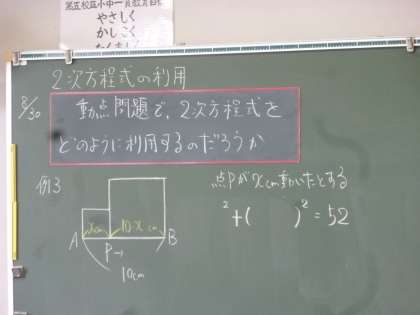 第五校区小中一貫教育目標
やさしく
かしこく
たくましく
2次方程式の利用
8/30
動点問題で、2次方程式を
どのように利用するのだろうか
例3
点Pがxcm動いたとする
² + ( )² = 52
xcm 10-x cm
A P→ B
10cm